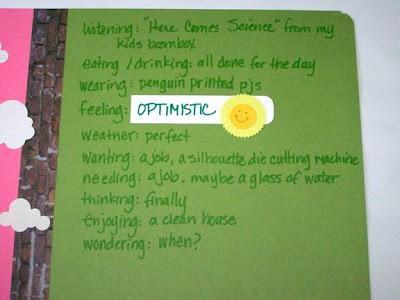 listening: "Here Comes Science" from my
kids boombox
eating/drinking: all done for the day
wearing: penguin printed pjs
feeling: OPTIMISTIC
weather: perfect
wanting: a job, a silhouette die cutting machine
needing: a job, maybe a glass of water
thinking: finally
enjoying: a clean house
wondering: when?